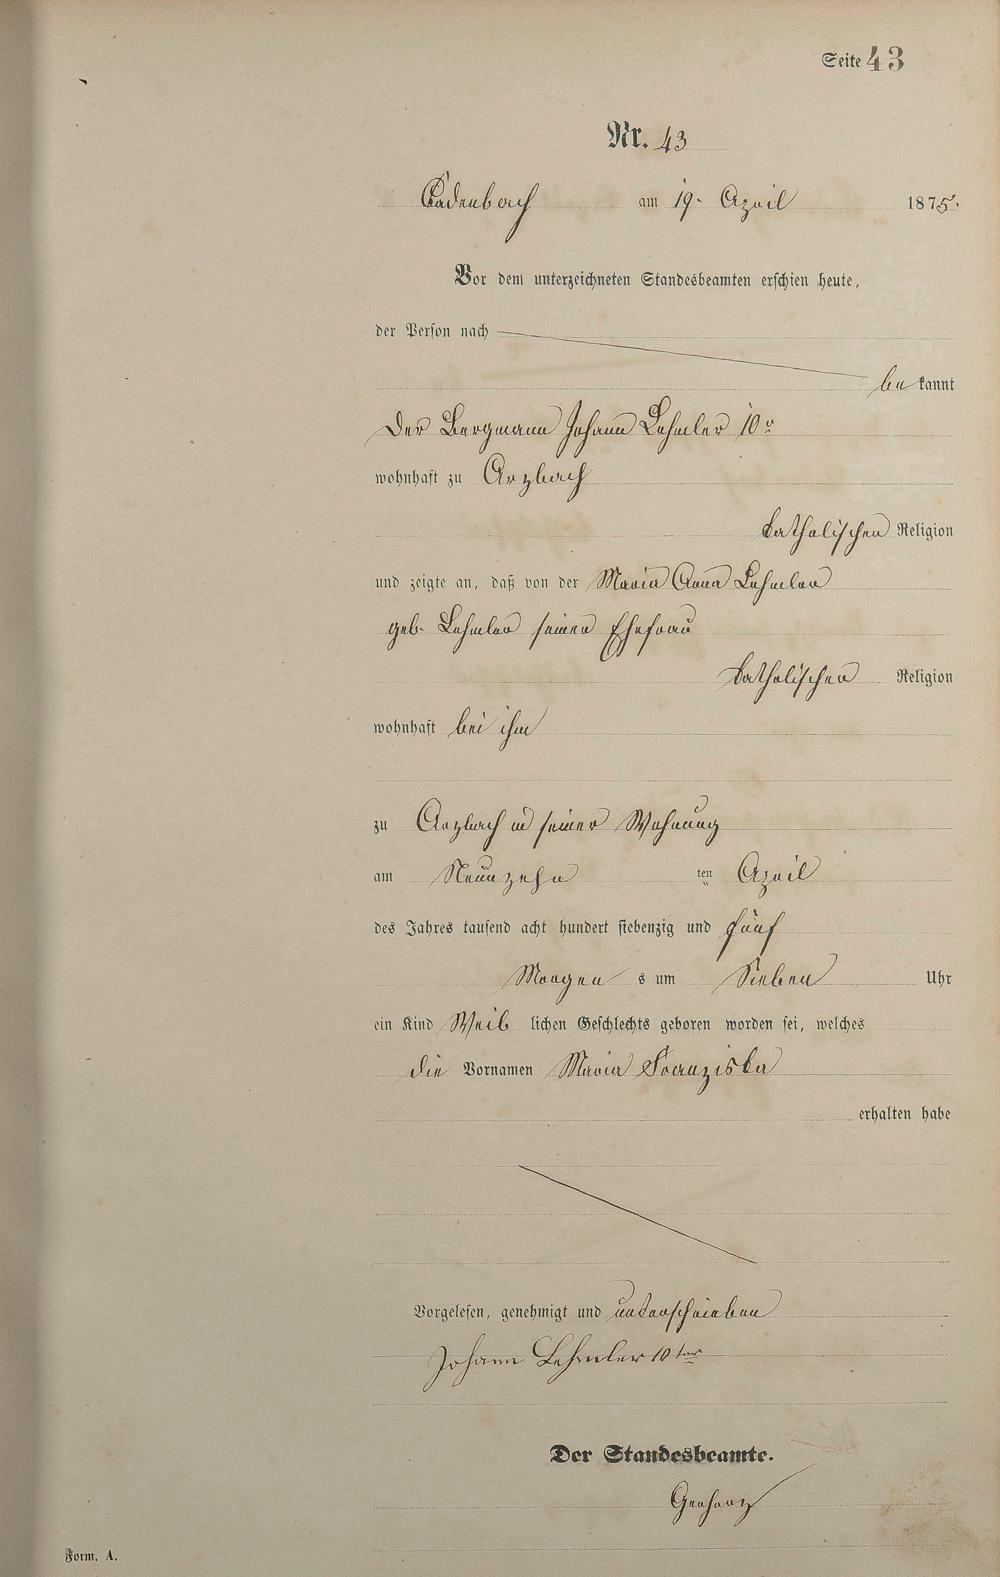 Seite 43
Nr. 43
Cadenbach am 19. April 1875.
Vor dem unterzeichneten Standesbeamten erschien heute,
der Person nach
be kannt
Der Bergmann Johann Lehmler 10r
wohnhaft zu Arzbach
katholischen Religion
und zeigte an, daß von der Maria Anna Lehmler
geb. Lehmler seiner Ehefrau
katholischer Religion
wohnhaft bei ihm
zu Arzbach in seiner Wohnung
am Neunzehn ten April
des Jahres tausend acht hundert siebenzig und fünf
Morgen s um Sieben Uhr
ein Kind Weib lichen Geschlechts geboren worden sei, welches
die Vornamen Maria Franziska
erhalten habe
Vorgelesen, genehmigt und unterschrieben
Johann Lehmler 10ter
Der Standesbeamte.
Gerharz
Form. A.